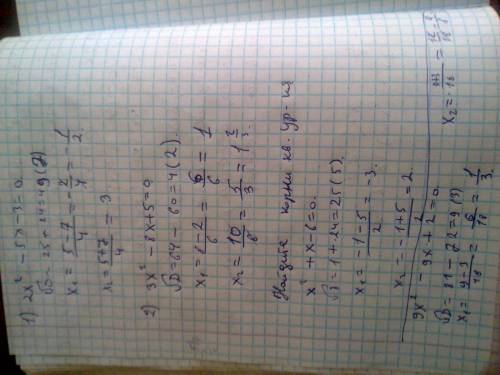 1) 2x² - 5x - 3 = 0.
√D = 25 + 24 = 49 (7)
x₁ = (5 - 7)/4 = -2/4 = -1/2.
x₂ = (5 + 7)/4 = 3.
2) 3x² - 8x + 5 = 0
√D = 64 - 60 = 4 (2).
x₁ = 6/6 = 1
x₂ = 10/6 = 5/3 = 1 2/3.
Найдите корни кв. ур-ия
x² + x - 6 = 0.
√D = 1 + 24 = 25 (5).
x₁ = (-1 - 5)/2 = -3.
x₂ = (-1 + 5)/2 = 2
9x² - 9x + 2 = 0.
√D = 81 - 72 = 9 (3)
x₁ = (9 - 3)/18 = 6/18 = 1/3.
x₂ =